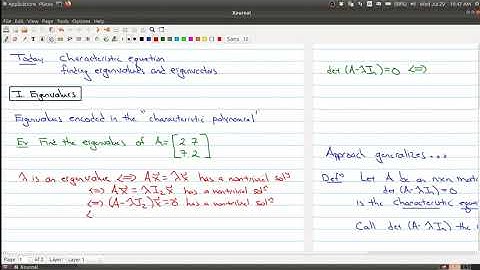 Applications Places
Xournal
Wed Jul 29 10:47 AM
File Edit View Journal Tools Options Help
Sans 12
Today Characteristic equation
finding eigenvalues and eigenvectors
I. Eigenvalues
Eigenvalues encoded in the "characteristic polynomial"
Ex Find the eigenvalues of A = [2 7
7 2]
λ is an eigenvalue <=> Ax⃗ = λx⃗ has a nontrivial solⁿ
<=> Ax⃗ = λI₂x⃗ has a nontrivial solⁿ
<=> (A-λI₂)x⃗ = 0⃗ has a nontrivial solⁿ
det (A-λIₙ)=0 <=>
Approach generalizes...
Defⁿ Let A be an nxn mat
det (A-λIₙ)=0
is the characteristic equa
Call det (A-λIₙ) the
Page 1 of 3 Layer: Layer 1
Xournal